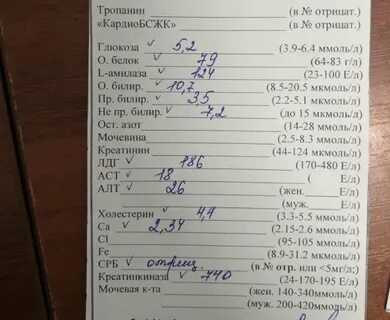 Тропанин (в № отрицат.)
«КардиоБСЖК» (в № отрицат.)
Глюкоза ✓ 5,2 (3.9-6.4 ммоль/л)
О. белок ✓ 79 (64-83 г/л)
L-амилаза ✓ 124 (23-100 Е/л)
О. билир. ✓ 10,7 (8.5-20.5 мкмоль/л)
Пр. билир. ✓ 3,5 (2.2-5.1 мкмоль/л)
Не пр. билир. ✓ 7,2 (до 15 мкмоль/л)
Ост. азот (14-28 ммоль/л)
Мочевина (2.5-8.3 ммоль/л)
Креатинин (44-124 мкмоль/л)
ЛДГ ✓ 186 (170-480 Е/л)
АСТ ✓ 18 ( Е/л)
АЛТ ✓ 26 (жен. Е/л)
(муж. Е/л)
Холестерин ✓ 4,4 (3.3-5.5 ммоль/л)
Ca ✓ 2,34 (2.15-2.6 ммоль/л)
Cl (95-105 ммоль/л)
Fe (8.9-31.2 мкмоль/л)
СРБ ✓ отриц. (в № отр. или <5мг/л;)
Креатинкиназа ✓ 740 (24-170-195 Е/л)
Мочевая к-та (жен. 140-340ммоль/л)
(муж. 200-420ммоль/л)